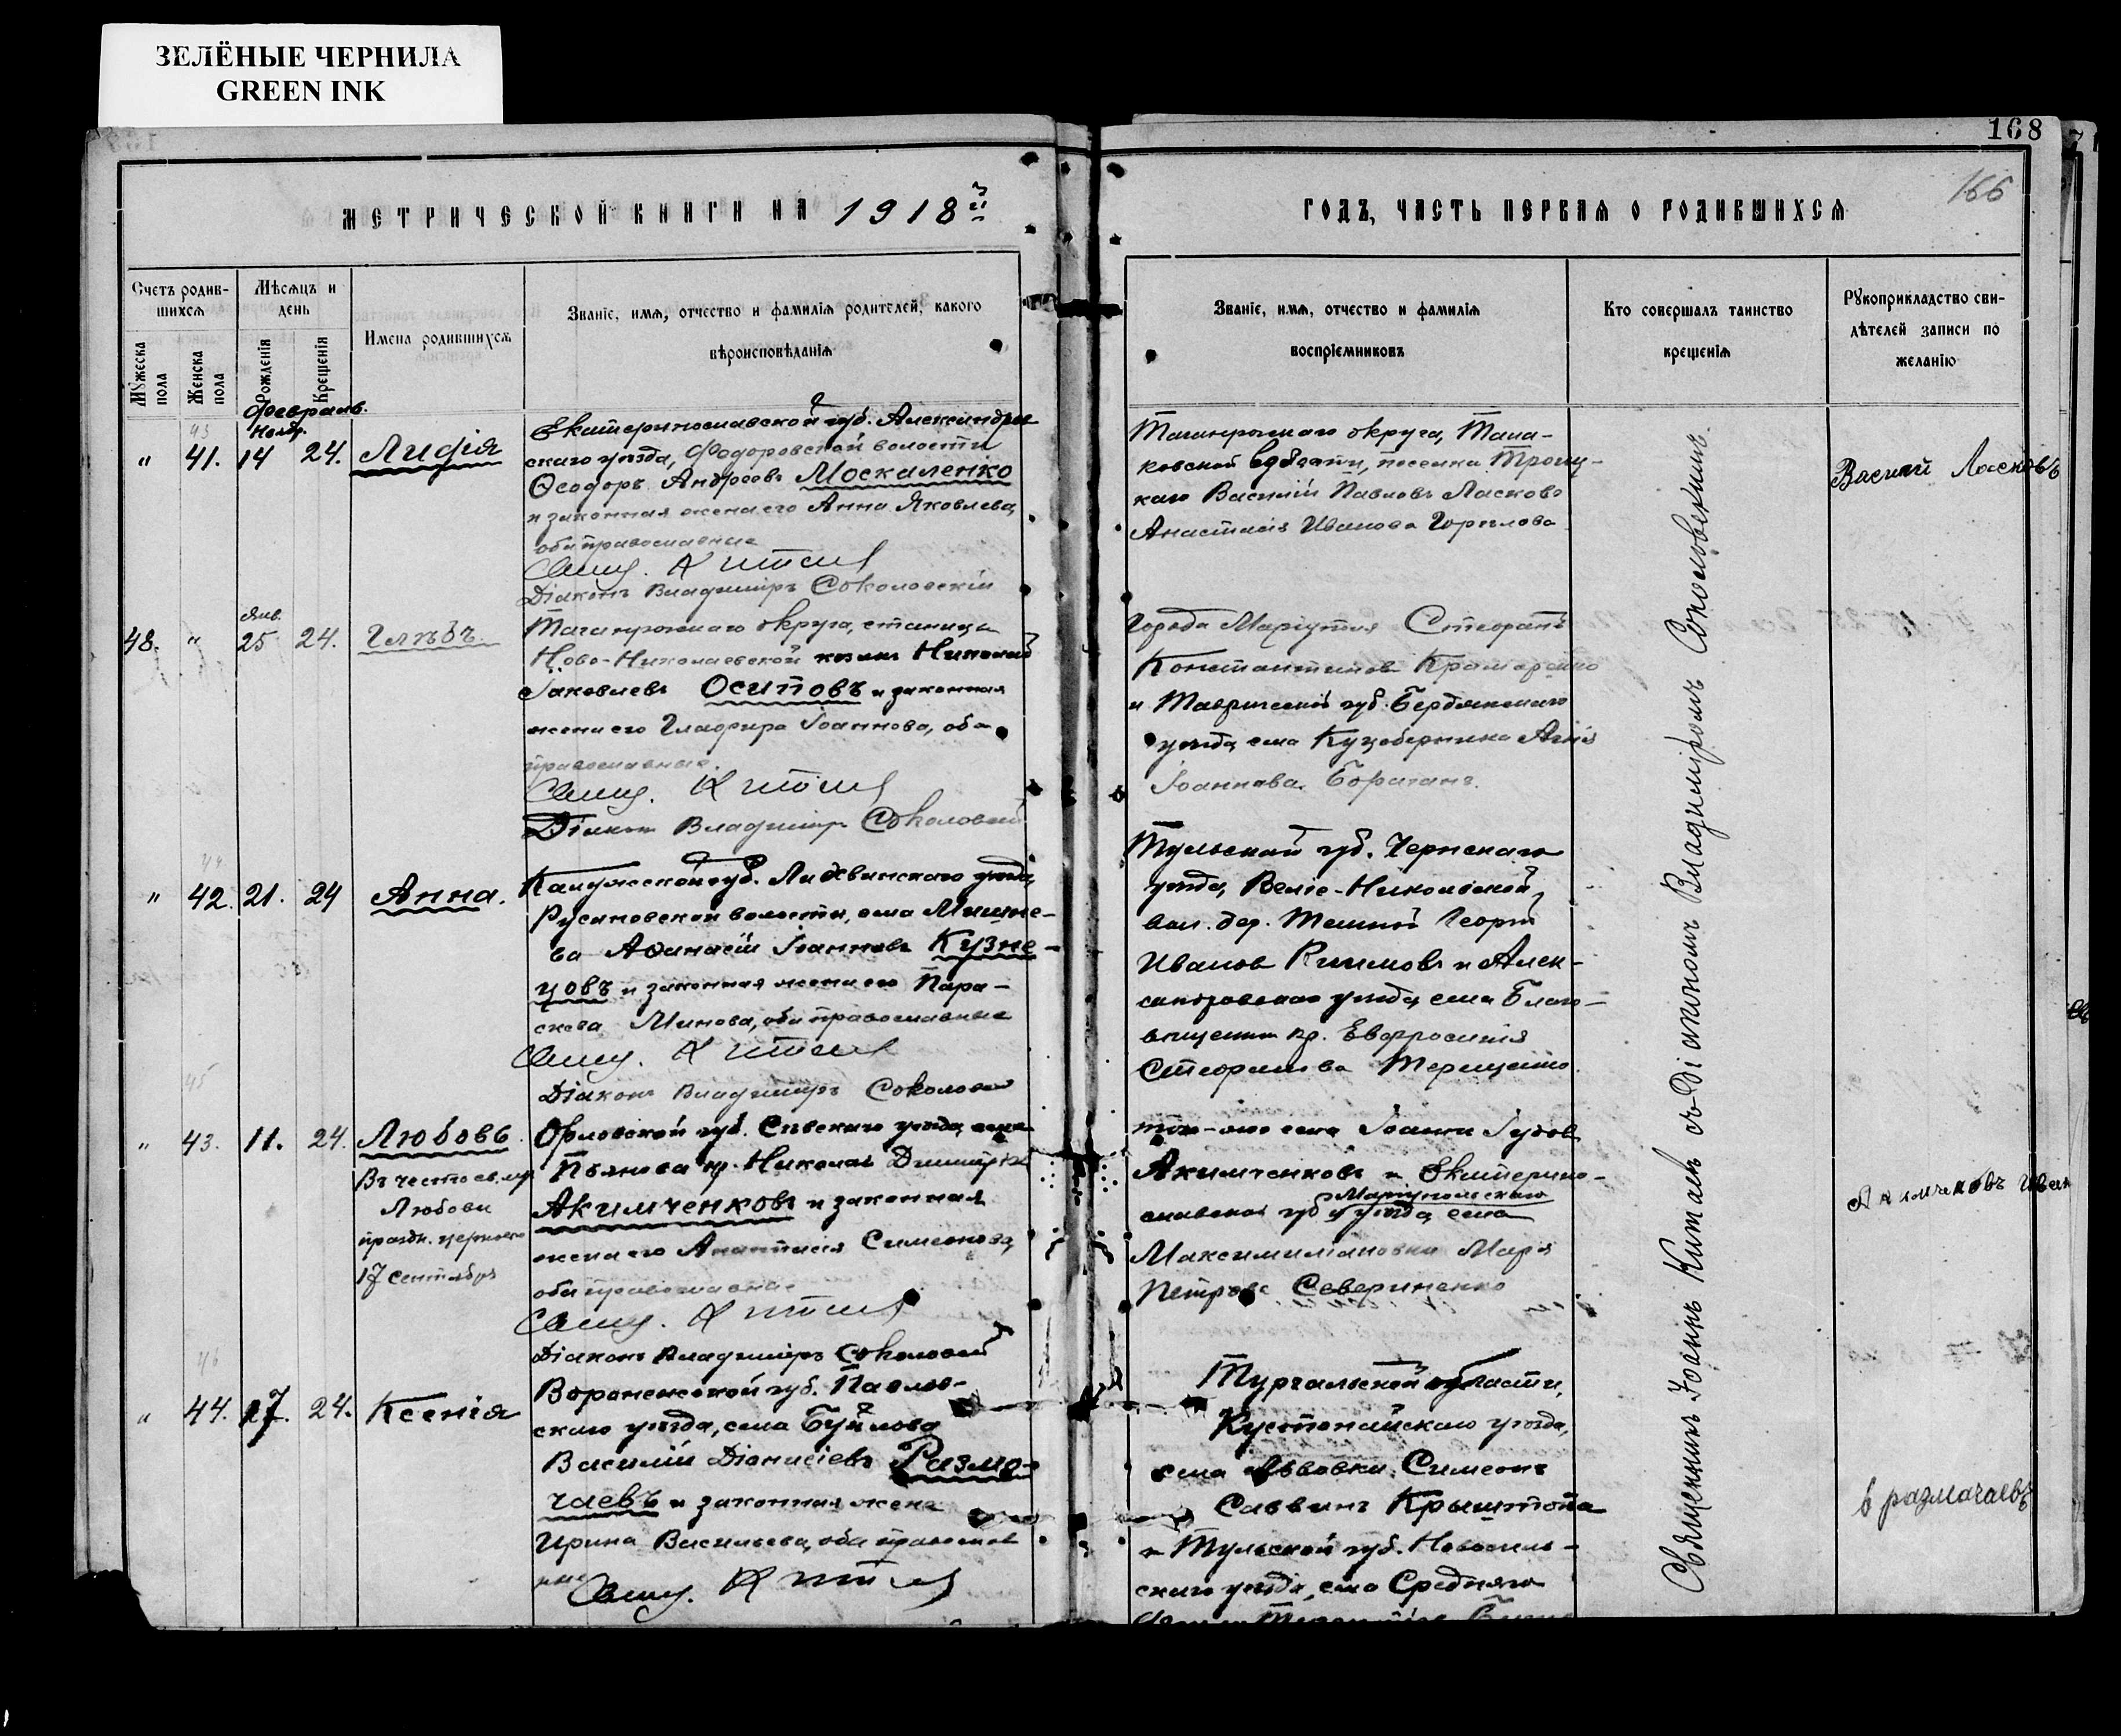 ЗЕЛЁНЫЕ ЧЕРНИЛА
GREEN INK
168
166
МЕТРИЧЕСКОЙ КНИГИ НА 1918й
ГОДЪ, ЧАСТЬ ПЕРВАЯ О РОДИВШИХСЯ
Счетъ родив-
шихся
Мужеска пола
Женска пола
Мѣсяцъ и
день
Рожденія
Крещенія
Имена родившихся
Званіе, имя, отчество и фамилія родителей, какого
вѣроисповѣданія
Званіе, имя, отчество и фамилія
воспріемниковъ
Кто совершалъ таинство
крещенія
Рукоприкладство сви-
дѣтелей записи по
желанію
Февраль.
43
„ 41. 14 24. Лидія
Екатеринославской губ. Александров
скаго уѣзда, Федоровской волости
Ѳеодоръ Андреевъ Москаленко
и законная жена его Анна Яковлева,
оба православные
Свящ. Китай
Діаконъ Владиміръ Соколовскій
Таганрогскаго округа,
ковской волости, поселка Троиц-
каго Василій Павловъ Ласковъ
Анастасія Иванова
Василій Ласковъ
Янв.
48. „ 25 24. Глѣбъ.
Таганрогскаго округа, станицы
Ново-Николаевской козакъ Николай
Іаковлевъ Осиповъ и законная
жена его Глафира Іоаннова, оба
православные.
Свящ. Китай
Діаконъ Владиміръ Соколовскій
Города Маріуполя Стефанъ
Константиновъ
и Таврической губ. Бердянскаго
уѣзда села
Іоаннова
44
„ 42. 21. 24 Анна.
Калужской губ. Лихвинскаго уѣзда,
Русановской волости, села Мишне-
ва Аѳанасій Іоанновъ Кузне-
цовъ и законная жена его Пара-
скева Минова, оба православные
Свящ. Китай
Діаконъ Владиміръ Соколовскій
Тульской губ. Чернскаго
уѣзда, Николаевской
вол. дер. Георгій
Ивановъ и Алек-
сандровскаго уѣзда, села Благо-
вѣщенки кр. Евфросинія
Стефанова Терещенко.
45
„ 43. 11. 24. Любовь.
Въ честь св. м.
Любови
праздн. церковью
17 сентября
Орловской губ. Сѣвскаго уѣзда, села
Пьянова кр. Николай Димитріевъ
Акимченковъ и законная
жена его Анастасія Симеонова,
оба православные
Свящ. Китай
Діаконъ Владиміръ Соколовскій
того-же села Іоаннъ
Акимченковъ и Екатерино-
Маріупольскаго
славской губ. уѣзда, села
Максимиліановки Марія
Петрова Севериненко
Акимчековъ Иван
46
„ 44. 17. 24. Ксенія
Воронежской губ. Павлов-
скаго уѣзда, села Буйлова
Василій Діонисіевъ Размо-
чаевъ и законная жена
Ирина Васильева, оба православ
ные
Свящ. Китай
Тургайской области,
Кустанайскаго уѣзда,
села Львовки Симеонъ
Саввинъ Крыштопа
и Тульской губ. Новосиль-
скаго уѣзда, села Средняго
в размачаевъ
Священникъ Іоаннъ Китай съ Діакономъ Владиміромъ Соколовскимъ.